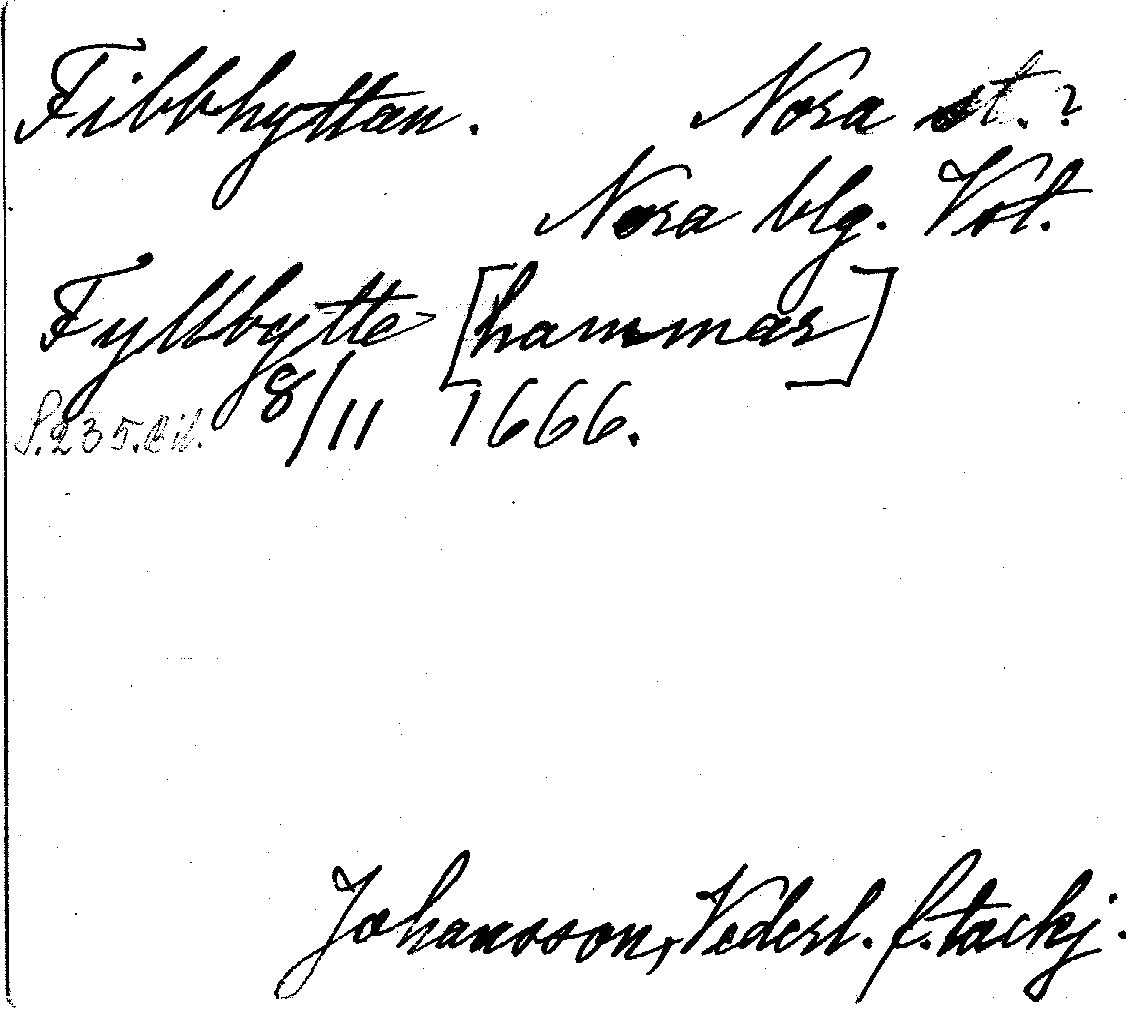 Fibbhyttan. Nora st.?
Nora blg. Vst.
Fyllbytte [hammar]
S. 235. bil. 8/11 1666.
Johansson, Vederl. f. tackj.